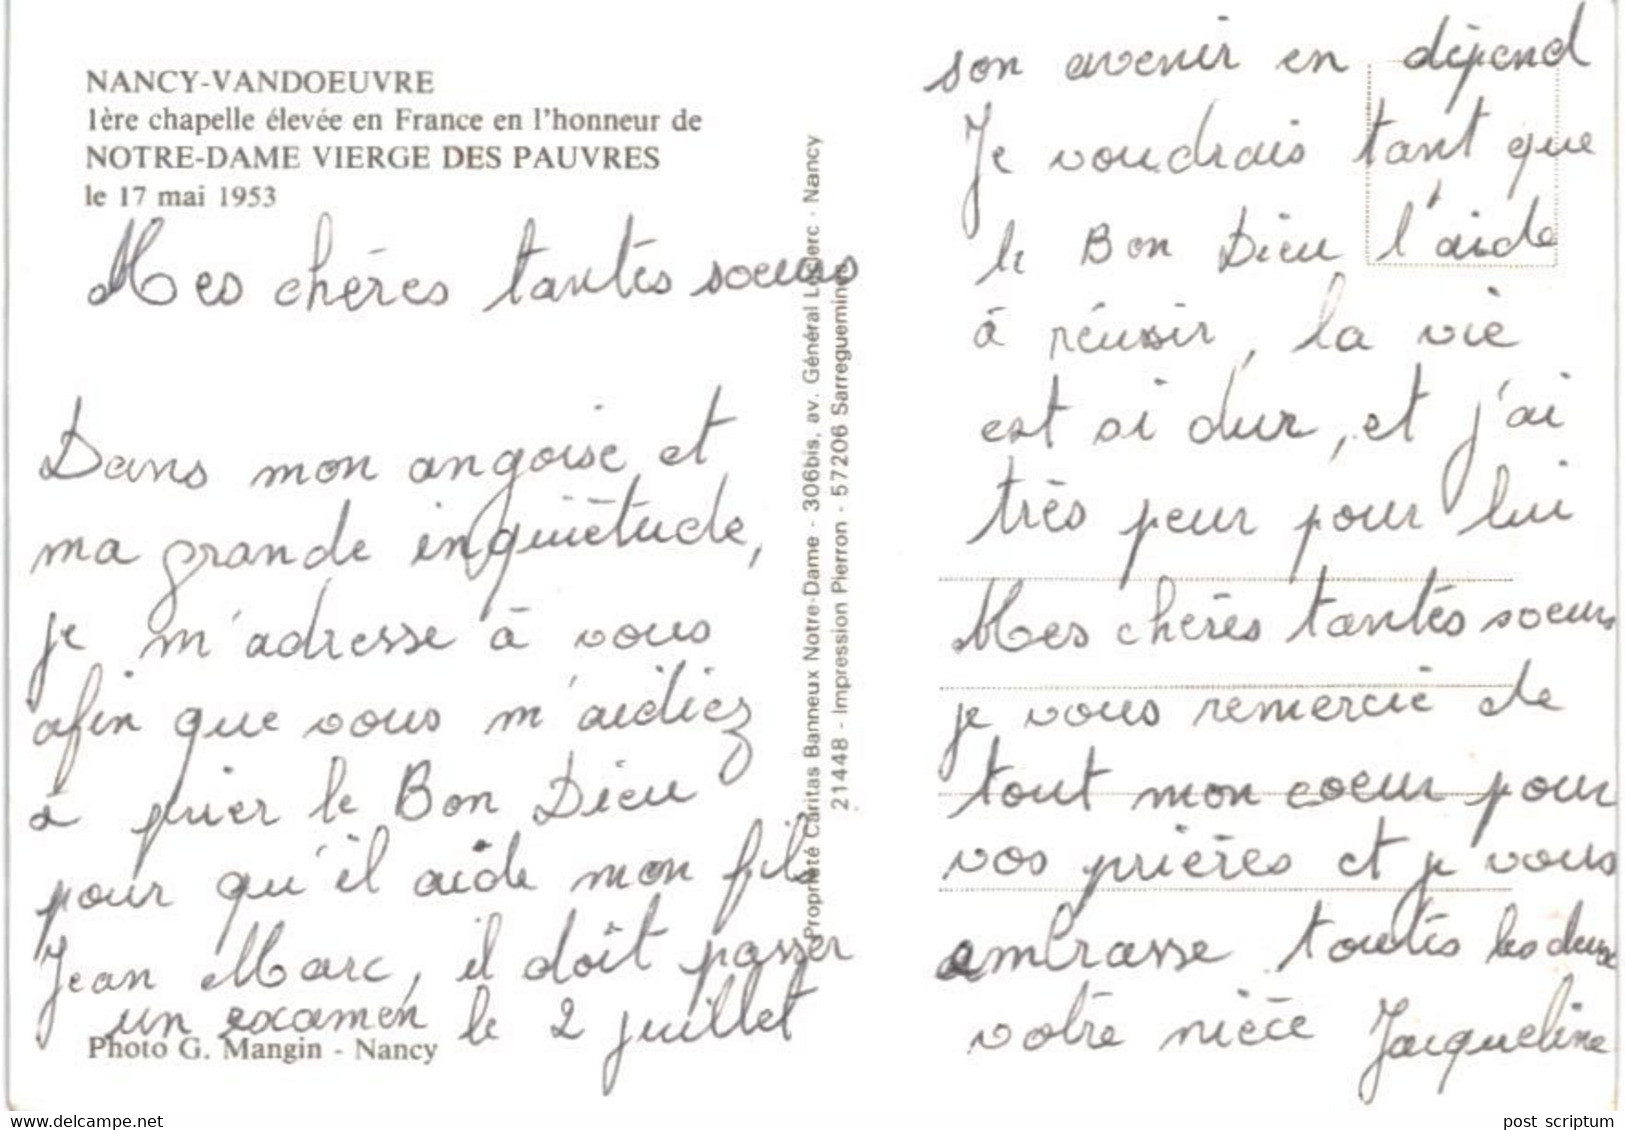 NANCY-VANDOEUVRE
1ère chapelle élevée en France en l'honneur de
NOTRE-DAME VIERGE DES PAUVRES
le 17 mai 1953
Mes chères tantes soeurs
Dans mon angoise et
ma grande inquiètude,
je m'adresse à vous
afin que vous m'aidiez
a prier le Bon Dieu
pour qu'il aide mon fils
Jean Marc, il doit passer
un examen le 2 juillet
Photo G. Mangin - Nancy
Propriété Caritas Banneux Notre-Dame - 306bis, av. Général Leclerc - Nancy
21448 - Impression Pierron - 57206 Sarreguemines
son avenir en dépend
Je voudrais tant que
le Bon Dieu l'aide
à réussir, la vie
est si dur, et j'ai
très peur pour lui
Mes chères tantes soeurs
je vous remercie de
tout mon coeur pour
vos prières et je vous
embrasse toutes les deux
votre nièce Jacqueline
www.delcampe.net
post_scriptum